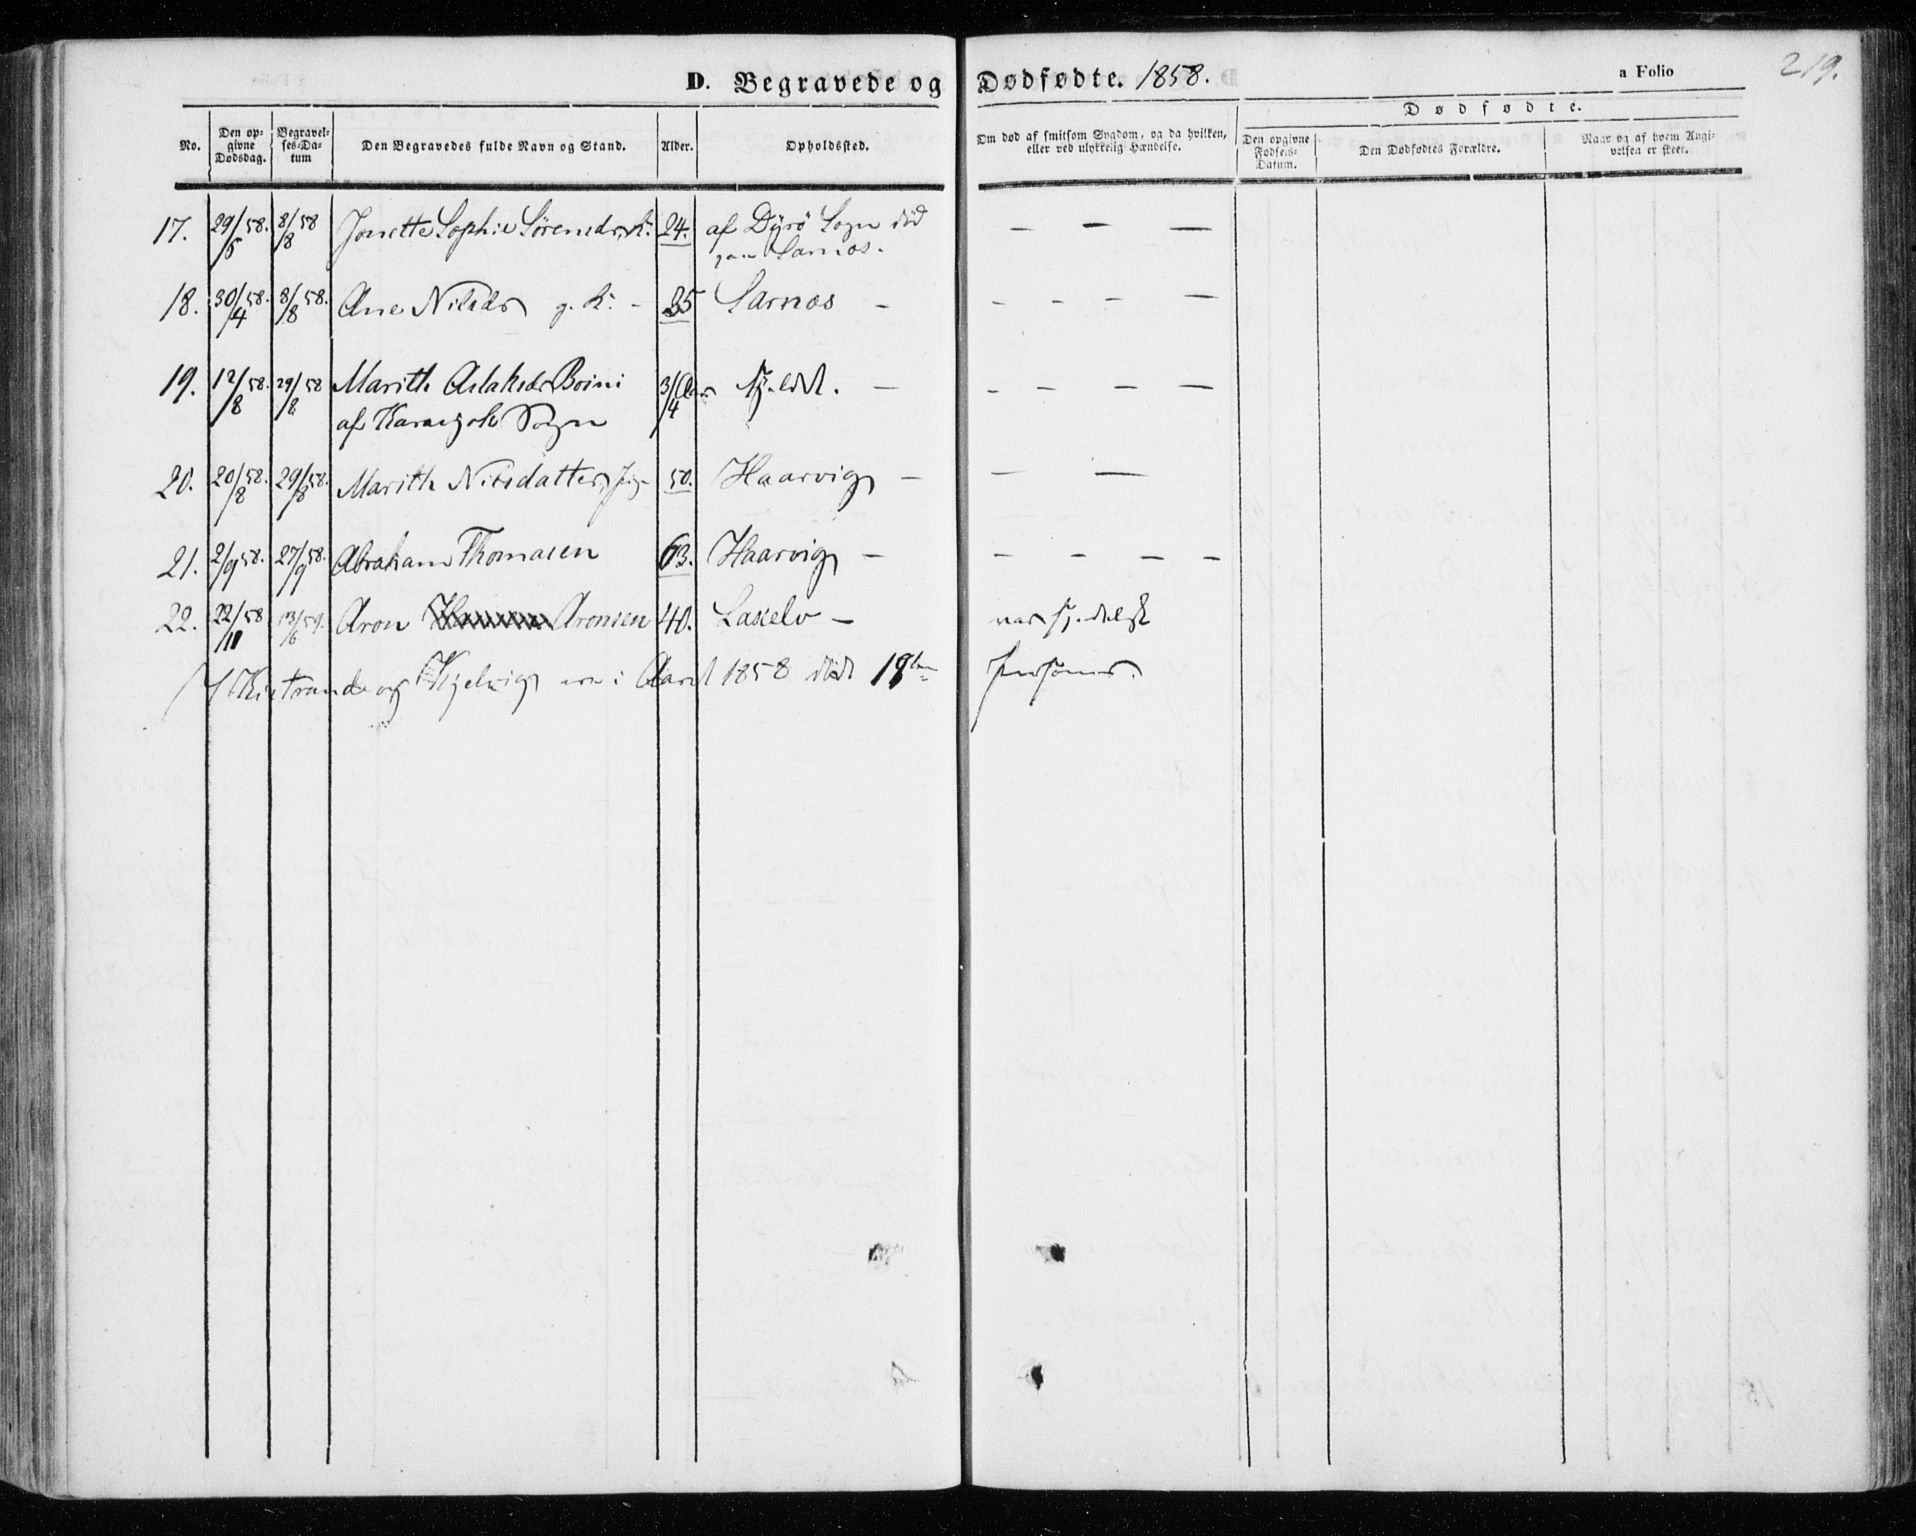 D. Begravede og Dødfødte. 1858.
a Folio 219.
No.
Den opgivne Dødsdag.
Begravelses-Datum
Den Begravedes fulde Navn og Stand.
Alder.
Opholdssted.
Om død af smitsom Sygdom, og da hvilken, eller ved ulykkelig Hændelse.
Dødfødte.
Den opgivne Fødsels-Datum.
Den Dødfødtes Forældre.
Naar og af hvem Angivelsen er skeet.
17. 29/6 58. 8/8 58 Jonette Sophie Sørensdr. K. 24. af Dyrø Sogn død — —
Sarnæs.
18. 30/4 58. 8/8 58. Ane Nilsdr g. K. - 25 Sarnæs - - - - —
19. 12/8 58. 29/8 58 Marith Aslaksdr Boini 3/4 Aar — - - - —
af Karasjok Sogn
20. 20/8 58. 29/8 58. Marith Nilsdatter, Pig. 50. Haarvig — — —
21. 2/9 58. 27/9 58. Abraham Thomasen 63. Haarvig — - - - -
22. 22/11 58 13/6 59. Aron Aronsen 40. Laxelv —
I Kistrand og Kjelvig ere i Aaret 1858 døde 19ten Personer.